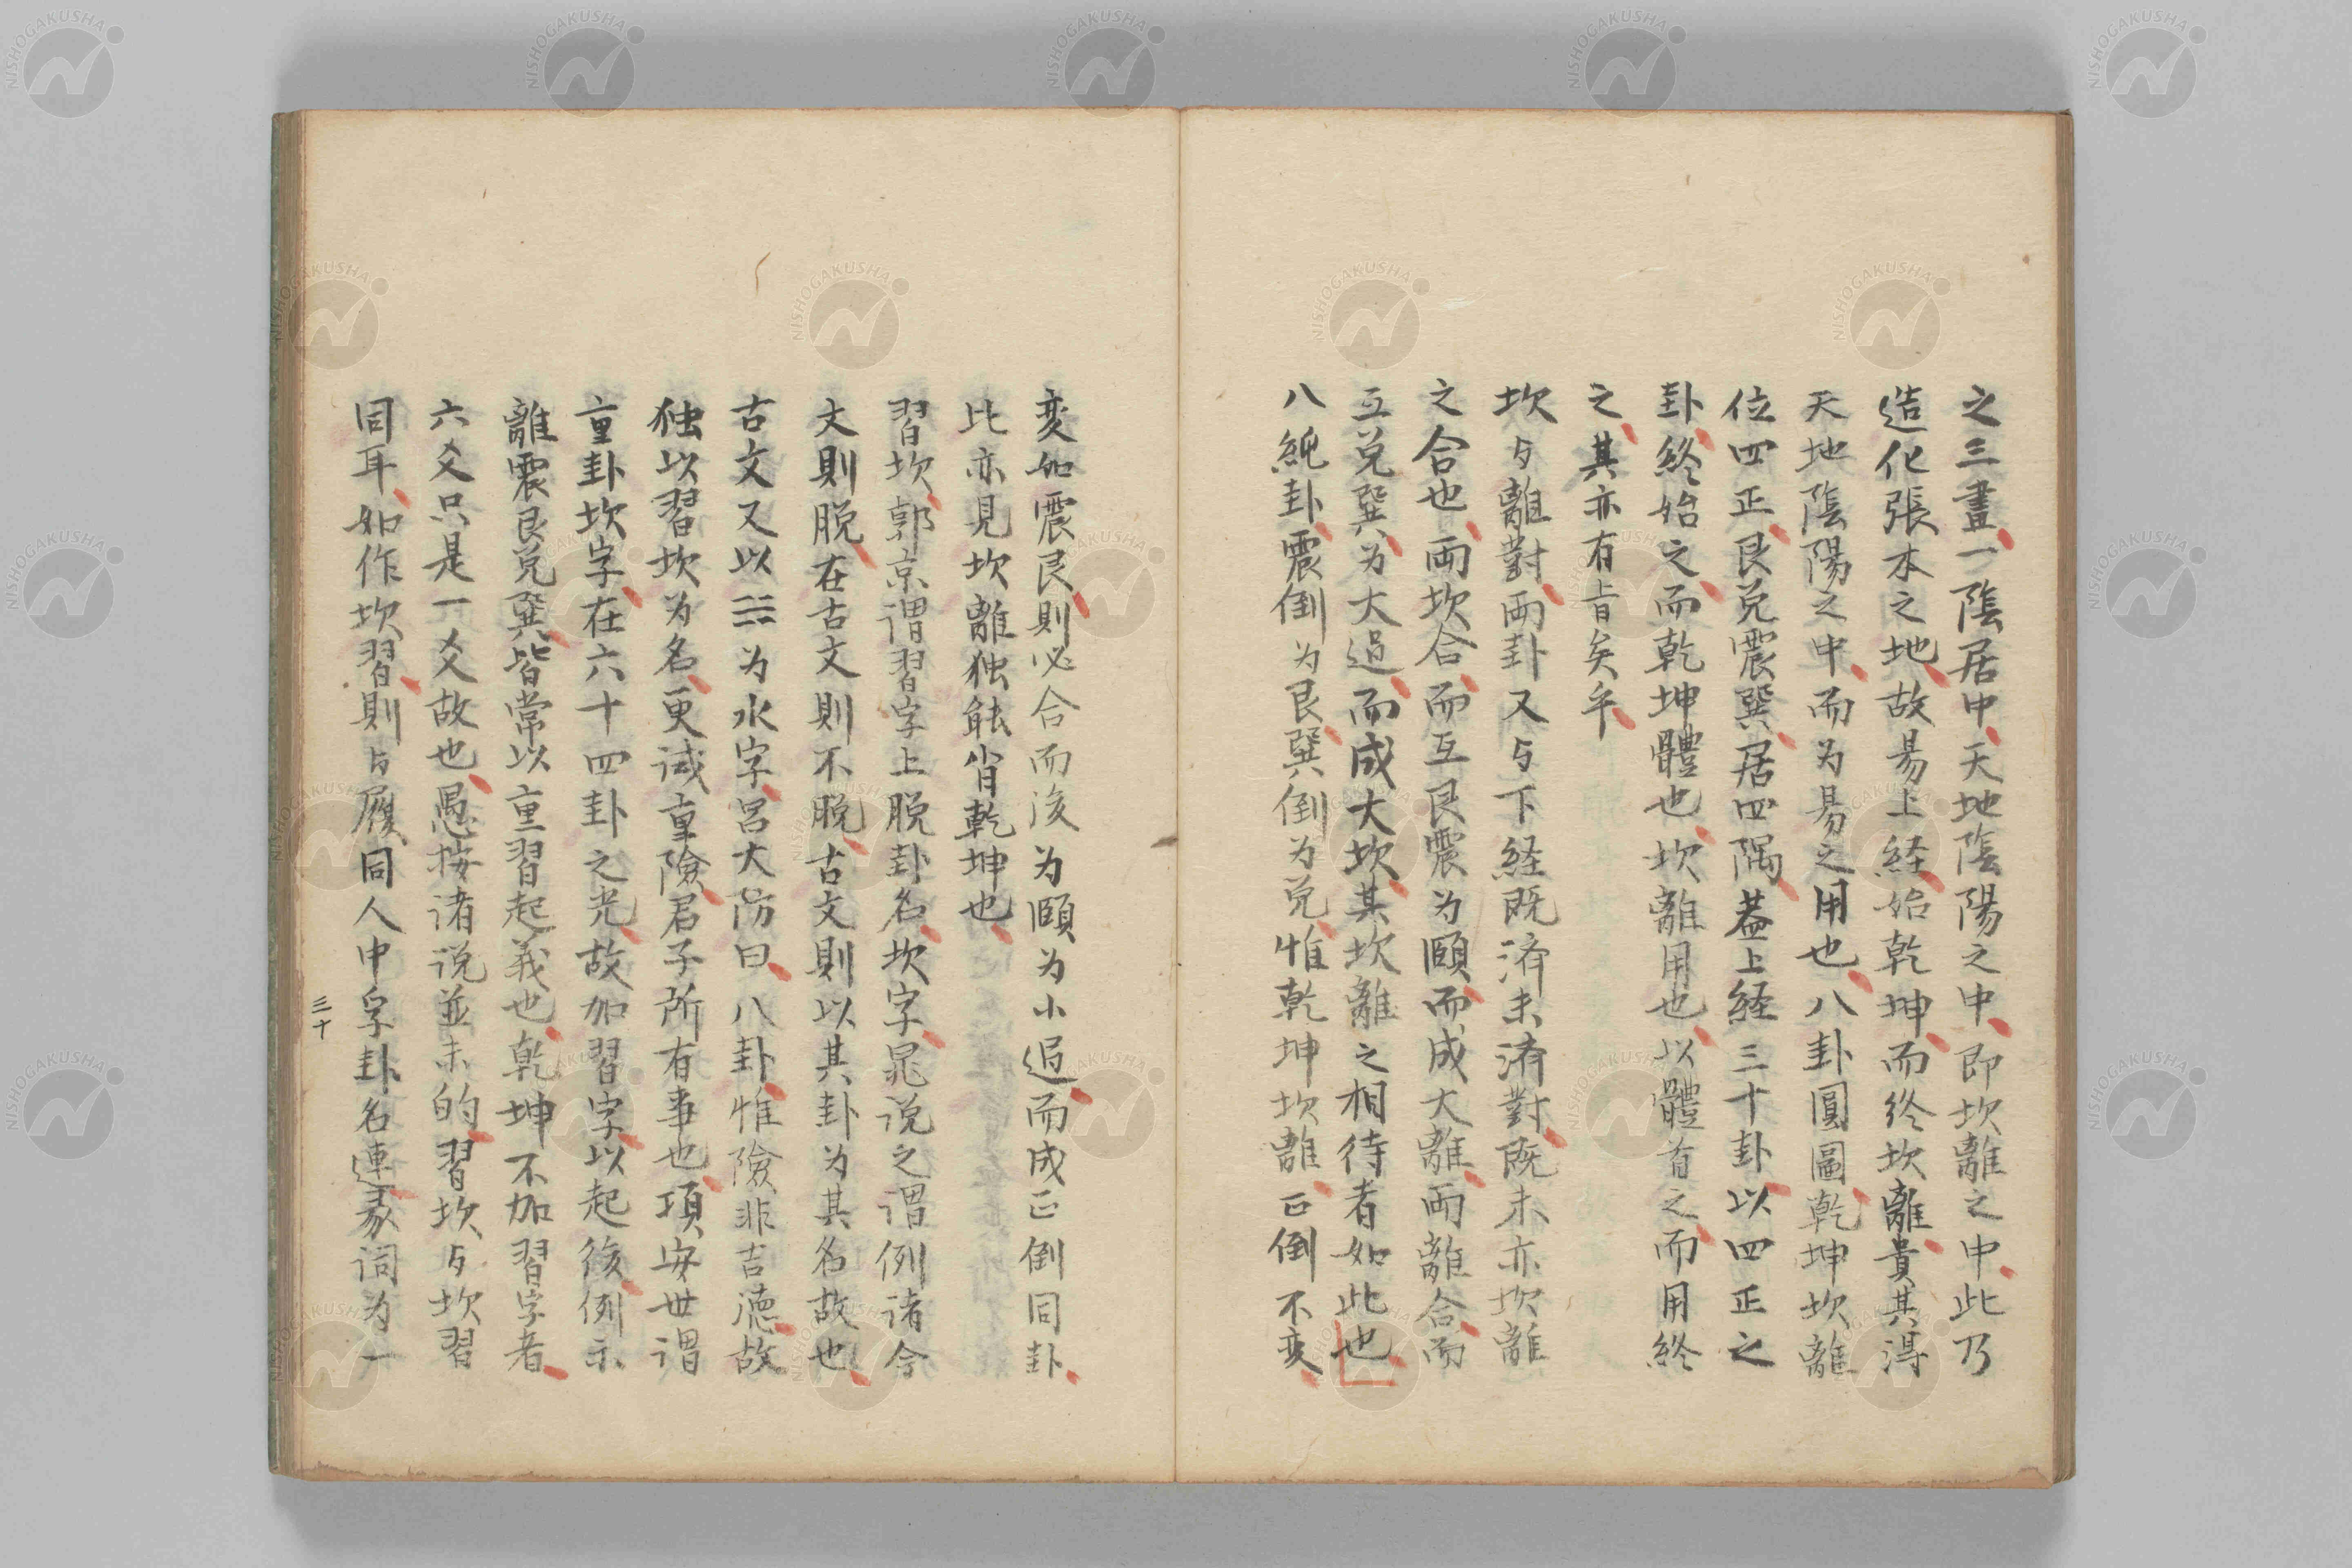 之三畫一陰居中天地陰陽之中即坎離之中此乃
造化張本之地故易上経始乾坤而終坎離貴其得
天地陰陽之中而为易之用也八卦圓圖乾坤坎離
位四正艮兌震巽居四隅蓋上経三十卦以四正之
卦終始之而乾坤體也坎離用也以體首之而用終
之其亦有旨矣乎
坎与離對両卦又与下経既済未済對既未亦坎離
之合也両坎合而互艮震为頤而成大離両離合而
互兌巽为大過而成大坎其坎離之相待者如此也
八純卦震倒为艮巽倒为兌惟乾坤坎離正倒不変
変如震艮則必合而後为頤为小過而成正倒同卦
比亦見坎離独能肖乾坤也
習坎郭京謂習字上脱卦名坎字晁说之謂例诸今
文則脱在古文則不脱古文則以其卦为其名故也
古文又以☵为水字呂大防曰八卦惟險非吉徳故
独以習坎为名更诫重險君子所有事也項安世謂
重卦坎字在六十四卦之先故加習字以起後例示
離震艮兌巽皆常以重習起義也乾坤不加習字者
六爻只是一爻故也愚按诸说並未的習坎与坎習
同耳如作坎習則与履同人中孚卦名連彖词为一
三十
NISHOGAKUSHA